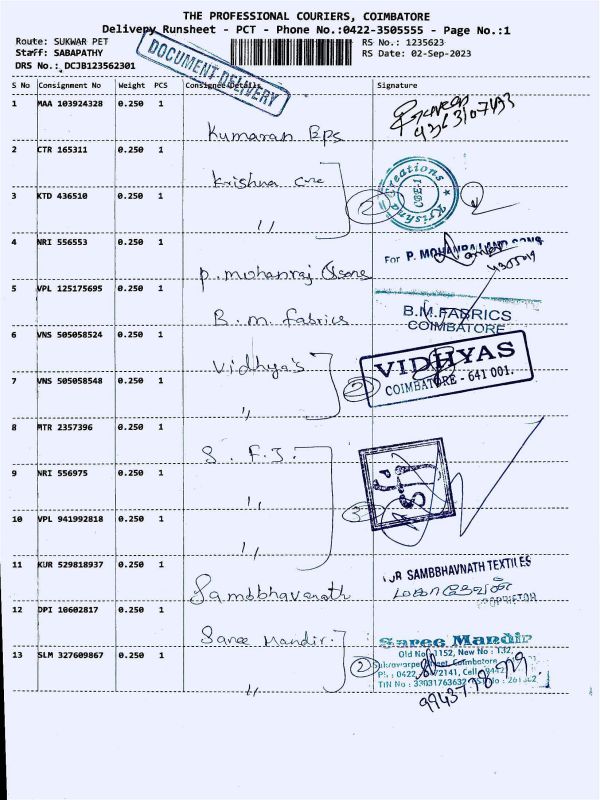 THE PROFESSIONAL COURIERS, COIMBATORE
Delivery Runsheet - PCT - Phone No.:0422-3505555 - Page No.:1
Route: SUKWAR PET
RS No.: 1235623
Staff: SABAPATHY
RS Date: 02-Sep-2023
DRS No.: DCJB123562301
DOCUMENT DELIVERY
S No Consignment No Weight PCS Consignee Details Signature
1 MAA 103924328 0.250 1
Kumaran Bps
2 CTR 165311 0.250 1
Krishna Cre
Krishna Creations
CBE-1
3 KTD 436510 0.250 1
,,
2
4 NRI 556553 0.250 1
P. mohanraj & sons
For P. MOHANRAJ AND SONS
5 VPL 125175695 0.250 1
B. m. fabrics
B.M.FABRICS
COIMBATORE
6 VNS 505058524 0.250 1
Vidhya's
VIDHYAS
COIMBATORE - 641 001.
7 VNS 505058548 0.250 1
,,
2
8 MTR 2357396 0.250 1
S. F. J.
9 NRI 556975 0.250 1
,,
10 VPL 941992818 0.250 1
,,
3
11 KUR 529818937 0.250 1
Sambbhavanath
SAMBBHAVNATH TEXTILES
மகாதேவன்
PROPRIETOR
12 DPI 10602817 0.250 1
Saree Mandir.
Saree Mandir
Old No. 1152, New No : 132,
Coimbatore
13 SLM 327609867 0.250 1
,,
2
TIN No : 33031763632